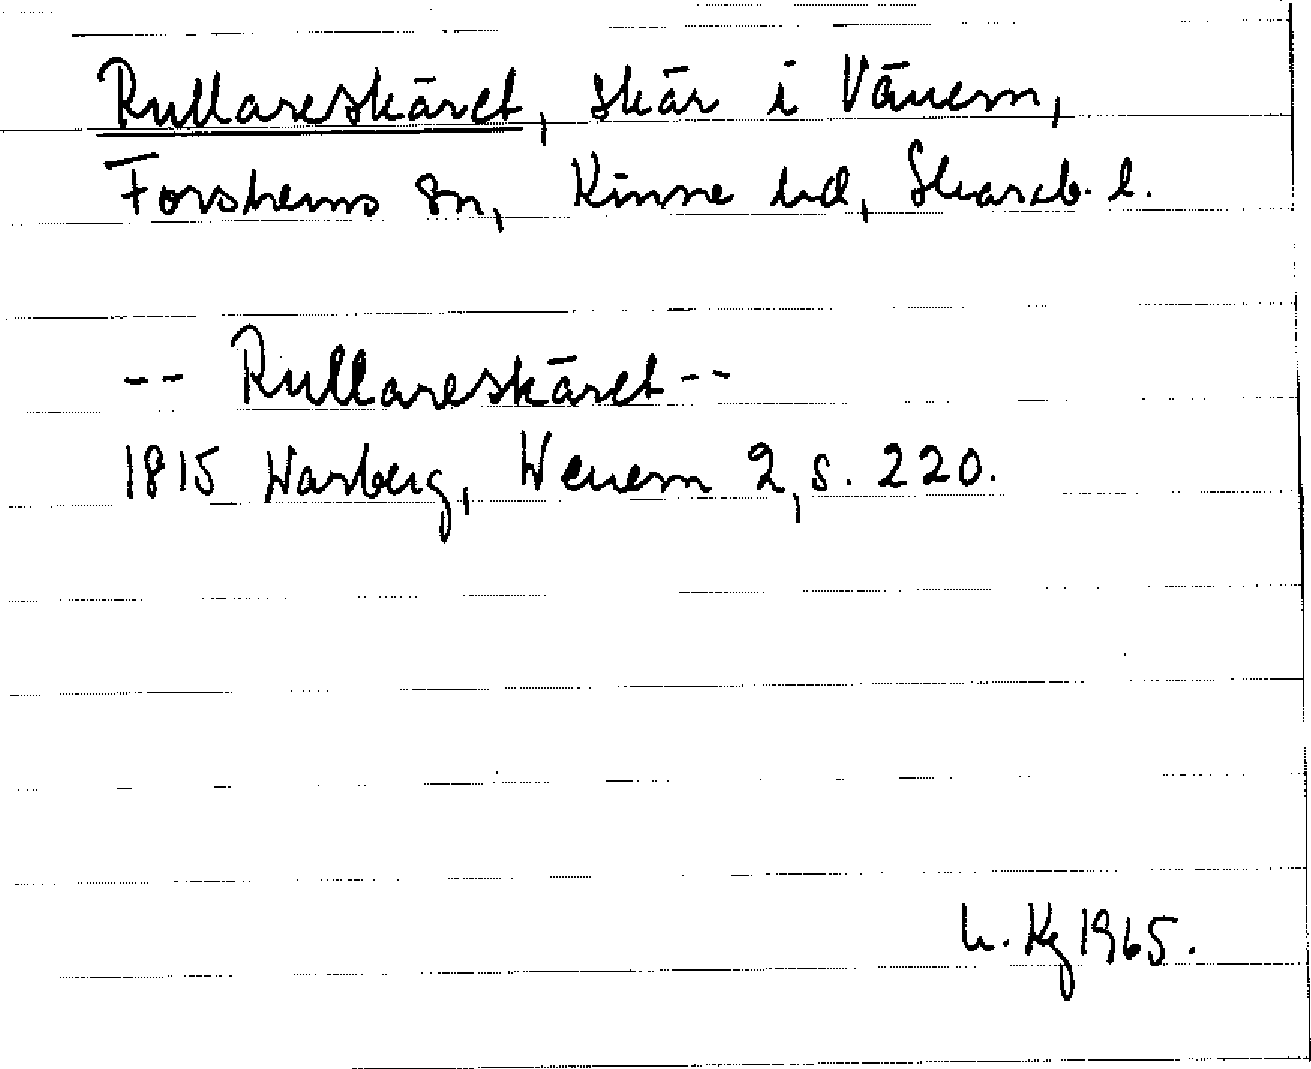 Rullareskäret, skär i Vänern,
Forshems sn, Kinne hd, Skarab. l.
-- Rullareskäret --
1815 Warberg, Wenern 2, s. 220.
h. Kg 1965.